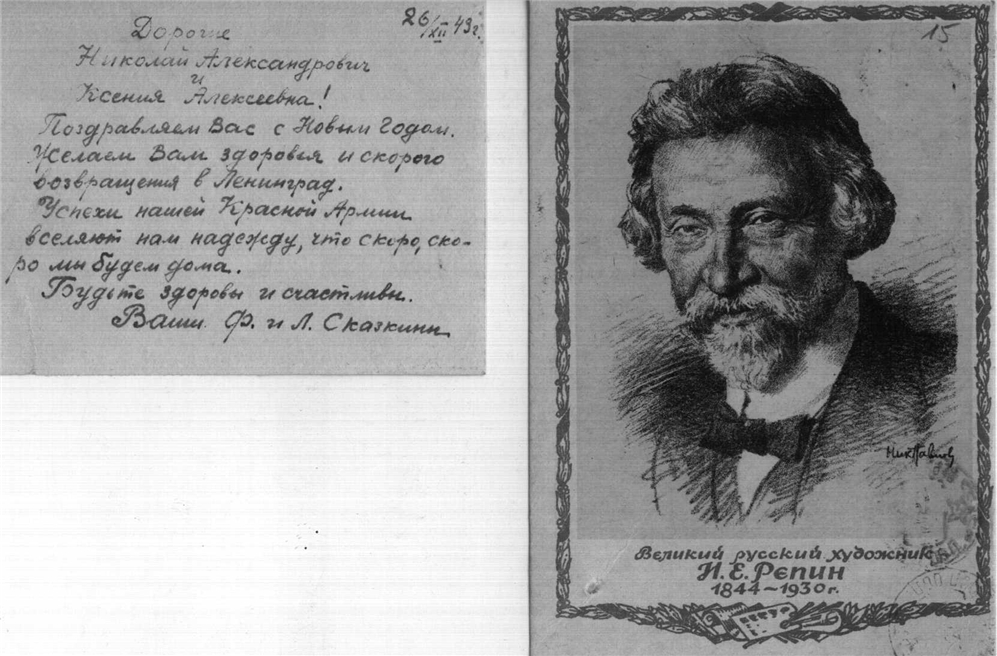 26/XII 43г.
Дорогие
Николай Александрович
и
Ксения Алексеевна!
Поздравляем Вас с Новым Годом.
Желаем Вам здоровья и скорого
возвращения в Ленинград.
Успехи нашей Красной Армии
вселяют нам надежду, что скоро, ско-
ро мы будем дома.
Будьте здоровы и счастливы.
Ваши Ф. и Л. Сказкины
15
Ник Павлов
Великий русский художник
И. Е. Репин
1844~1930г.